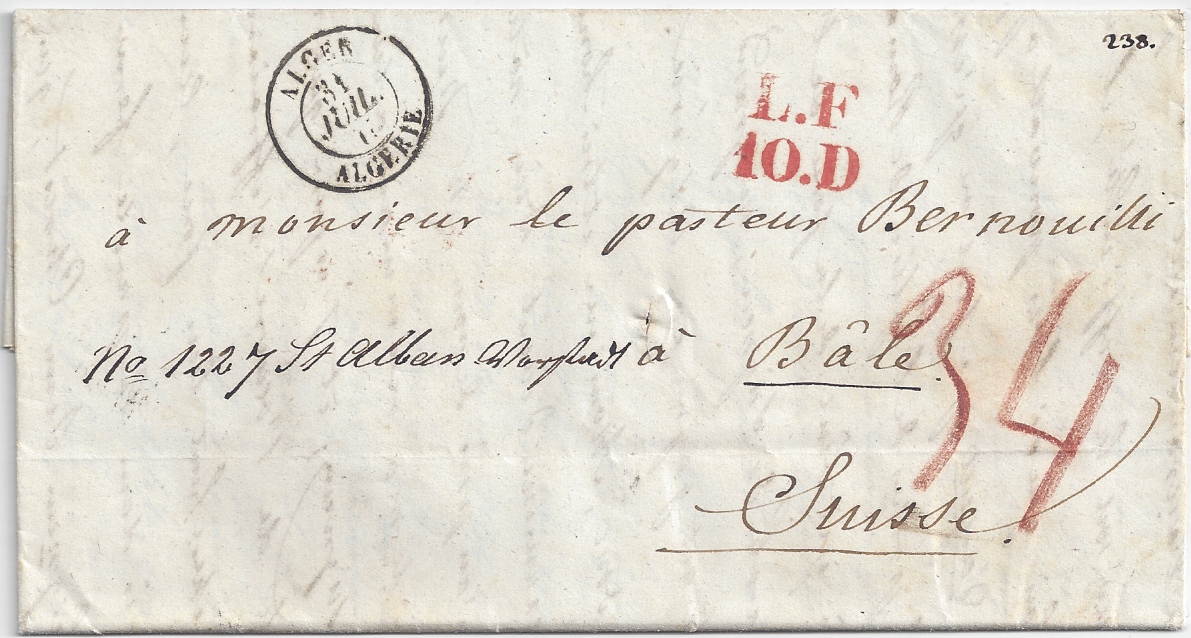 238.
ALGER
31
JUIL.
ALGERIE
L.F
10.D
à monsieur le pasteur Bernouilli
No 1227 St Alban Vorstadt à Bâle.
34
Suisse.